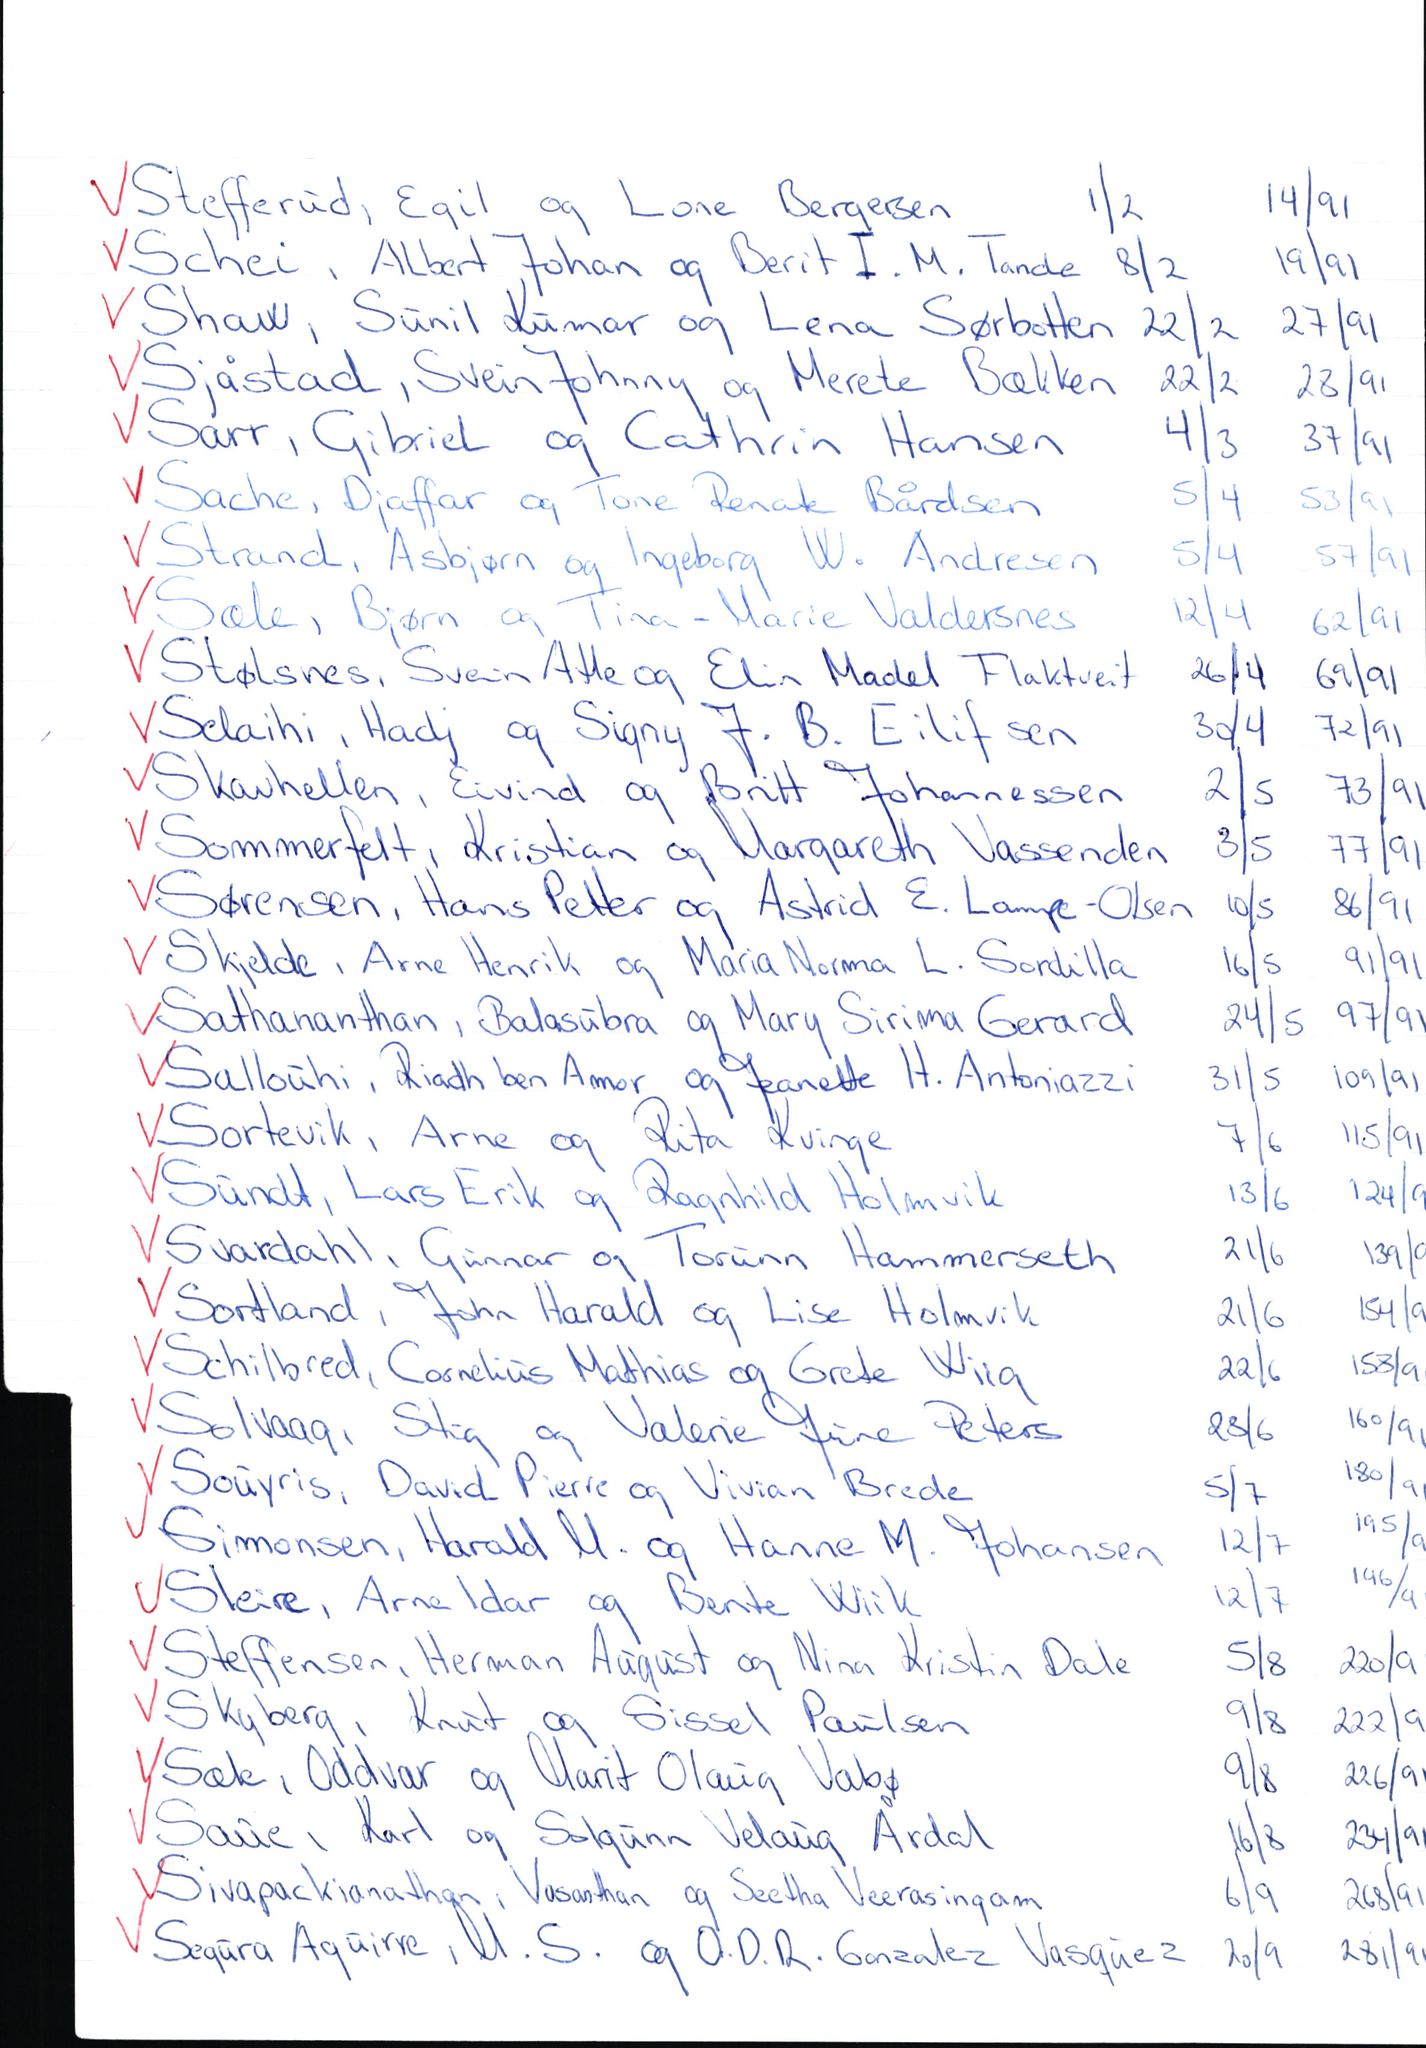 Stefferud, Egil og Lone Bergersen 1/2 14/91
Schei, Albert Johan og Berit I. M. Tande 8/2 19/91
Shaw, Sunil Kumar og Lena Sørbotten 22/2 27/91
Sjåstad, Svein Johnny og Merete Bækken 22/2 28/91
Sarr, Gibriel og Cathrin Hansen 4/3 37/91
Sache, Djaffar og Tone Renate Bårdsen 5/4 53/91
Strand, Asbjørn og Ingeborg W. Andresen 5/4 57/91
Sæle, Bjørn og Tina-Marie Valdersnes 12/4 62/91
Stølsnes, Svein Atle og Elin Madel Flaktveit 26/4 69/91
Selaihi, Hadj og Signy J. B. Eilifsen 30/4 72/91
Skavhellen, Eivind og Britt Johannessen 2/5 73/91
Sommerfelt, Kristian og Margareth Vassenden 3/5 77/91
Sørensen, Hans Petter og Astrid E. Lampe-Olsen 10/5 86/91
Skjelde, Arne Henrik og Maria Norma L. Sordilla 16/5 91/91
Sathananthan, Balasubra og Mary Sirima Gerard 24/5 97/91
Sallouhi, Riadh ben Amor og Jeanette H. Antoniazzi 31/5 109/91
Sortevik, Arne og Rita Kvinge 7/6 115/91
Sundt, Lars Erik og Ragnhild Holmvik 13/6 124/9
Svardahl, Gunnar og Torunn Hammerseth 21/6 139/9
Sortland, John Harald og Lise Holmvik 21/6 154/9
Schilbred, Cornelius Mathias og Grete Wiig 22/6 158/9
Solvaag, Stig og Valerie June Peters 28/6 160/91
Souyris, David Pierre og Vivian Brede 5/7 180/91
Simonsen, Harald M. og Hanne M. Johansen 12/7 195/9
Sleire, Arne Idar og Bente Wiik 12/7 196/9
Steffensen, Herman August og Nina Kristin Dale 5/8 220/9
Skyberg, Knut og Sissel Paulsen 9/8 222/9
Sæle, Oddvar og Marit Olaug Vabø 9/8 226/91
Saue, Karl og Solgunn Velaug Årdal 16/8 234/91
Sivapackianathan, Vasanthan og Seetha Veerasingam 6/9 268/91
Segura Aguirre, M. S. og O.D.R. Gonzalez Vasquez 20/9 281/91